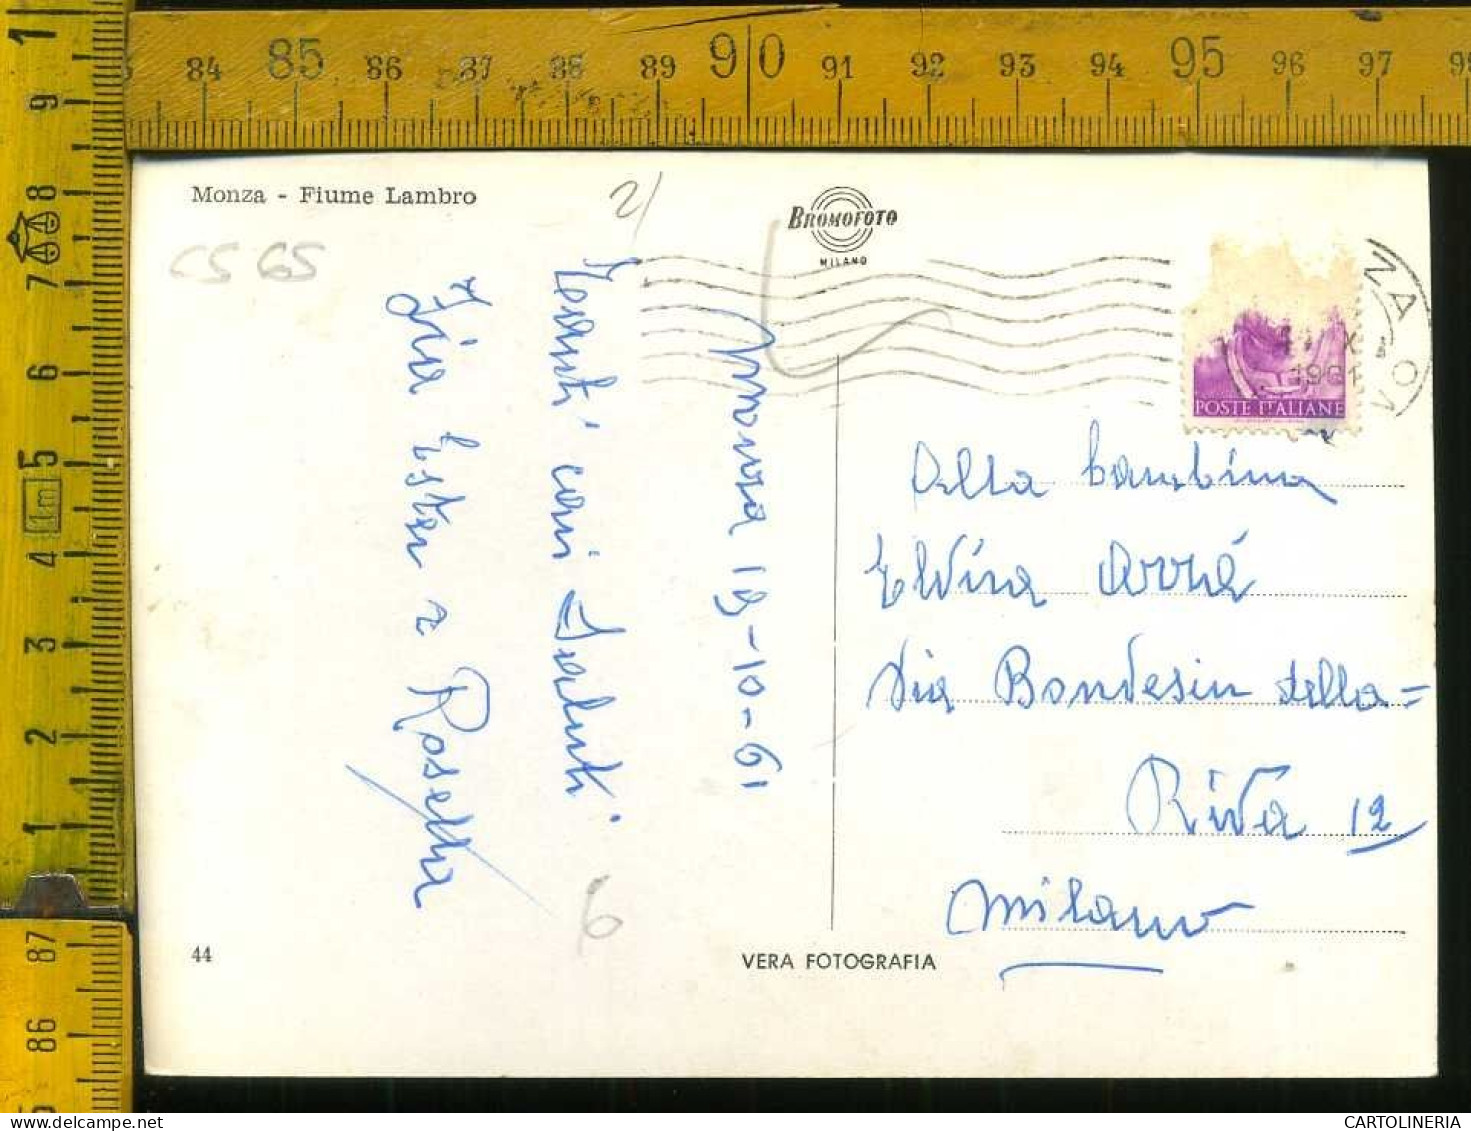 84 85 86 87 88 89 90 91 92 93 94 95 96 97
1 9 8 7 6 5 4 3 2 1 87 86
1m
Monza - Fiume Lambro
CS 65
2/
BROMOFOTO
MILANO
1961
POSTE ITALIANE
Monza 19-10-61
Tanti cari Saluti
Zia Ester e Rosetta
6
Alla bambina
Elvira Arrá
Via Bonvesin della=
Riva 12
Milano
44
VERA FOTOGRAFIA
CARTOLINERIA